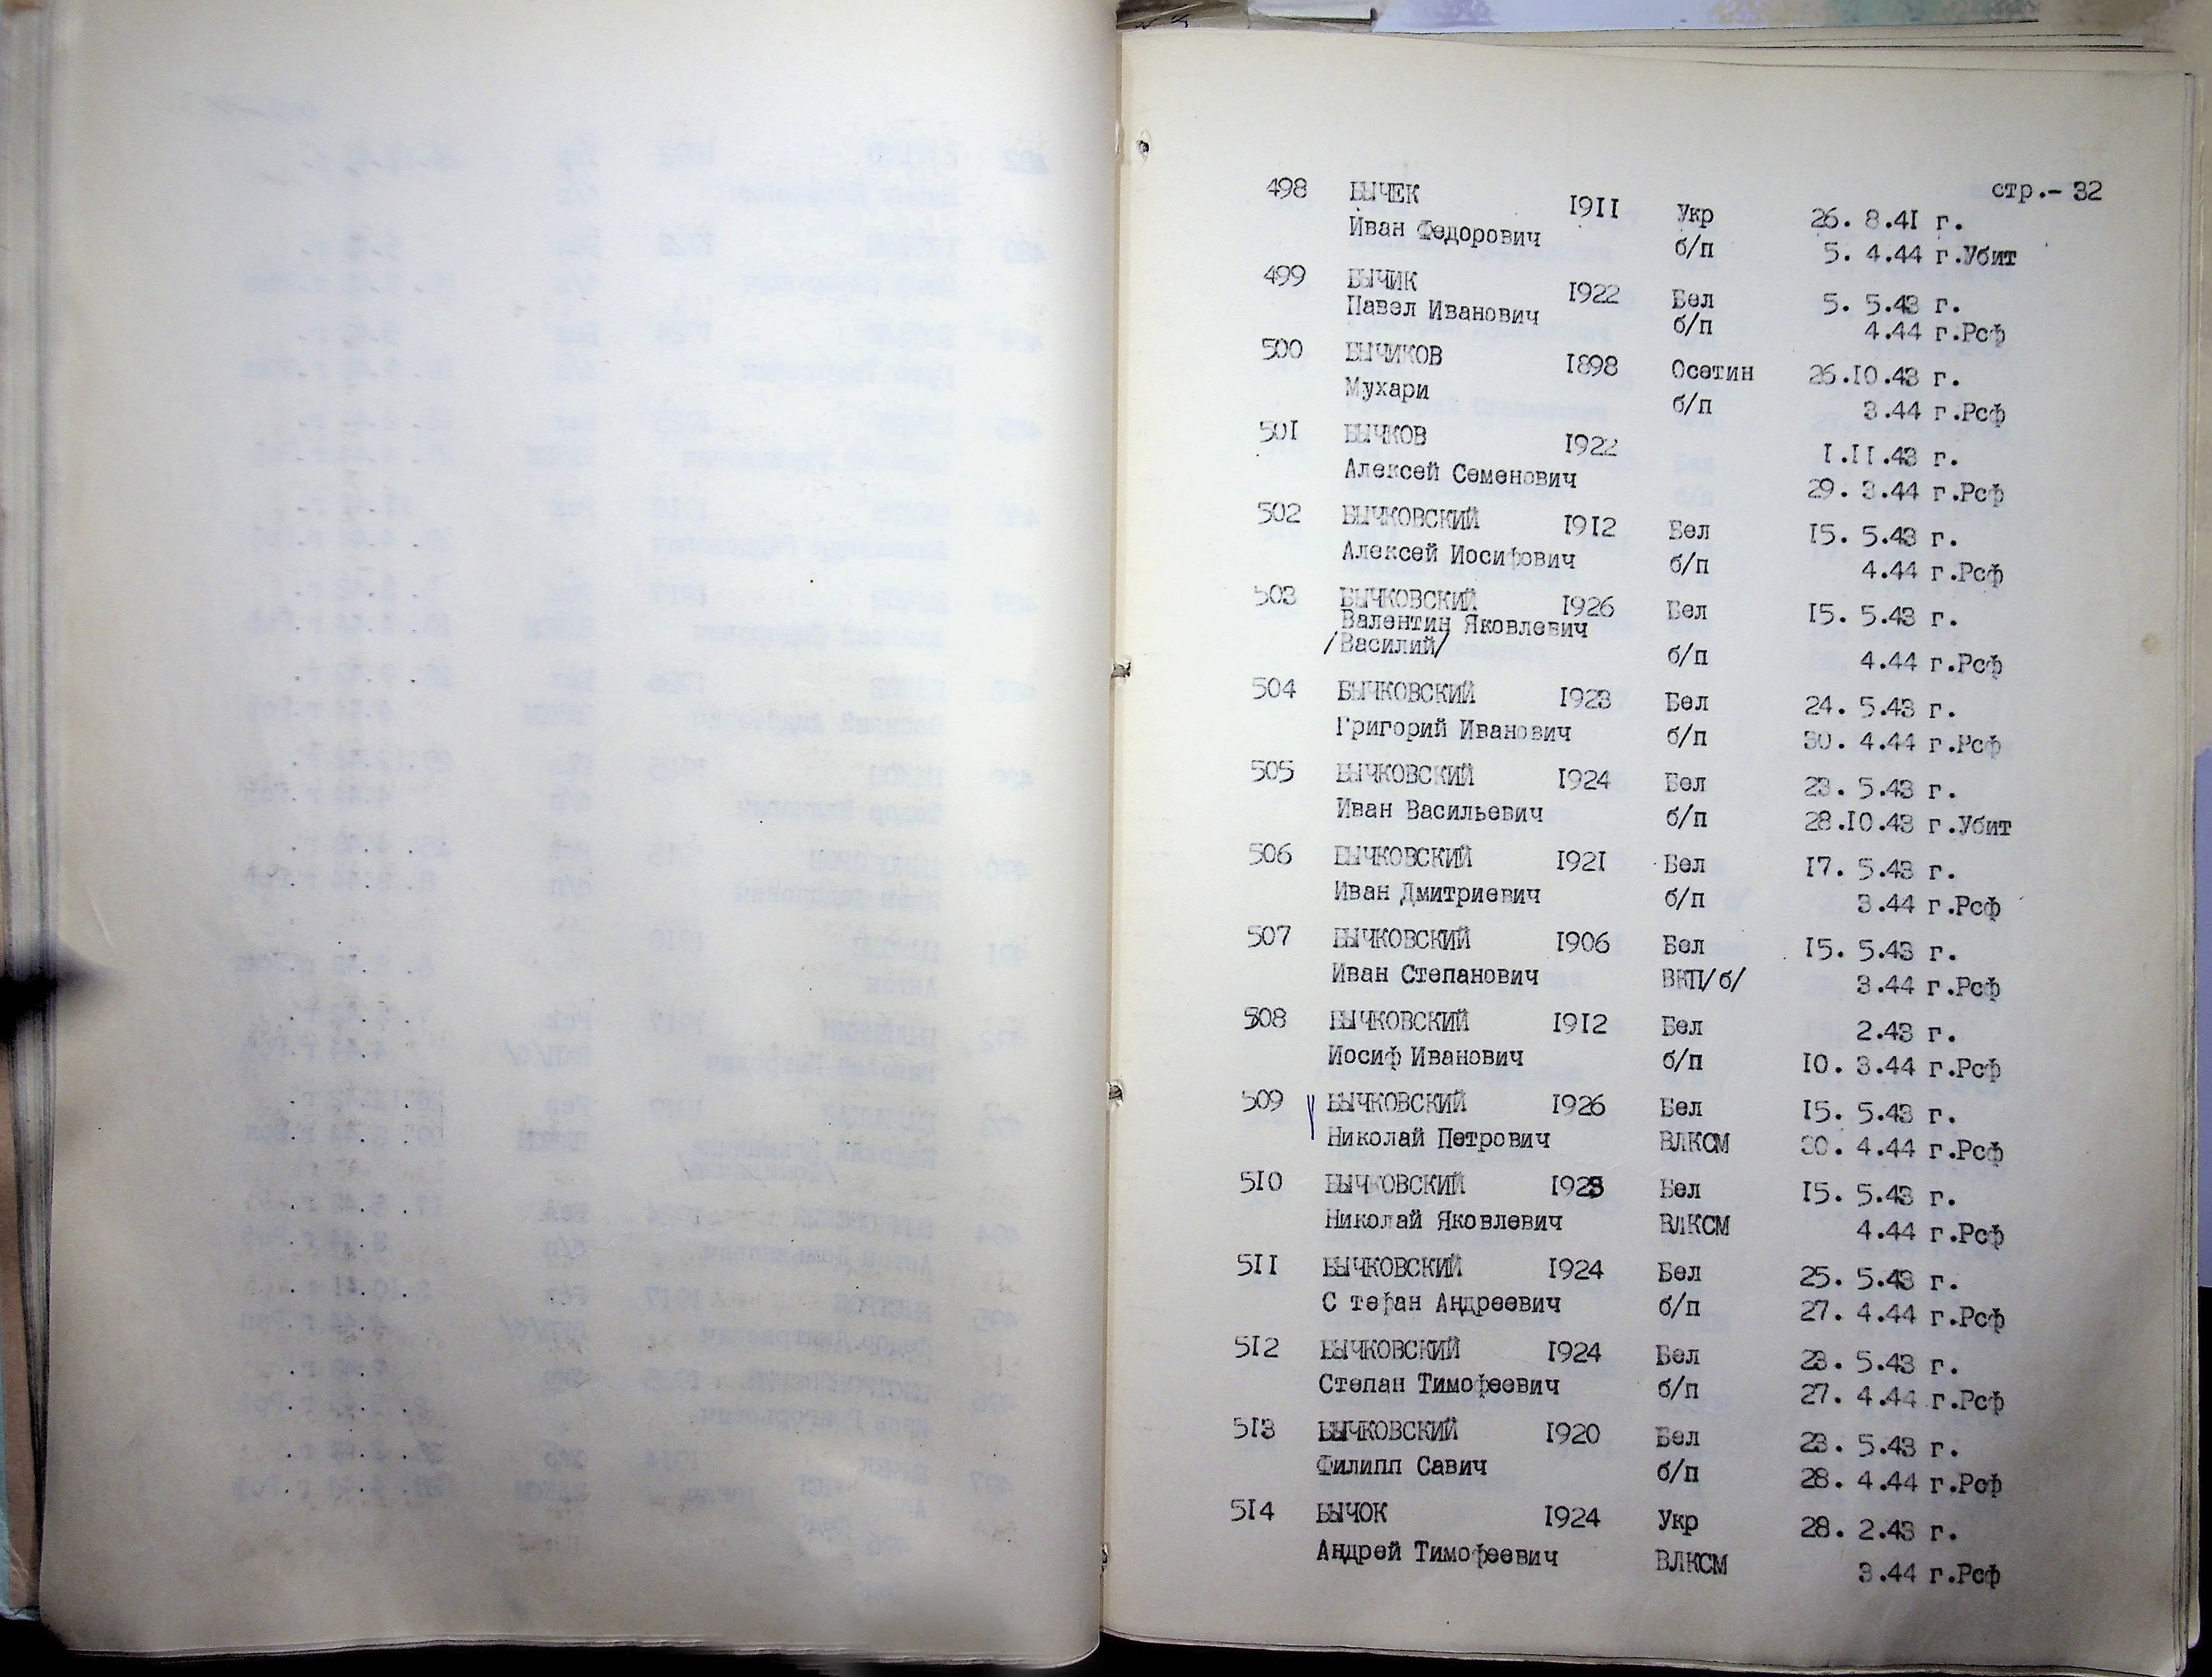 стр.- 32
498 БЫЧЕК 1911 Укр 26. 8.41 г.
Иван Федорович б/п 5. 4.44 г.Убит
499 БЫЧИК 1922 Бел 5. 5.43 г.
Павел Иванович б/п 4.44 г.Рсф
500 БЫЧИКОВ 1898 Осетин 26.10.43 г.
Мухари б/п 3.44 г.Рсф
501 БЫЧКОВ 1922 1.11.43 г.
Алексей Семенович 29. 3.44 г.Рсф
502 БЫЧКОВСКИЙ 1912 Бел 15. 5.43 г.
Алексей Иосифович б/п 4.44 г.Рсф
503 БЫЧКОВСКИЙ 1926 Бел 15. 5.43 г.
Валентин Яковлевич
/Василий/ б/п 4.44 г.Рсф
504 БЫЧКОВСКИЙ 1923 Бел 24. 5.43 г.
Григорий Иванович б/п 30. 4.44 г.Рсф
505 БЫЧКОВСКИЙ 1924 Бел 23. 5.43 г.
Иван Васильевич б/п 28.10.43 г.Убит
506 БЫЧКОВСКИЙ 1921 Бел 17. 5.43 г.
Иван Дмитриевич б/п 3.44 г.Рсф
507 БЫЧКОВСКИЙ 1906 Бел 15. 5.43 г.
Иван Степанович ВКП/б/ 3.44 г.Рсф
508 БЫЧКОВСКИЙ 1912 Бел 2.43 г.
Иосиф Иванович б/п 10. 3.44 г.Рсф
509 БЫЧКОВСКИЙ 1926 Бел 15. 5.43 г.
Николай Петрович ВЛКСМ 30. 4.44 г.Рсф
510 БЫЧКОВСКИЙ Бел 15. 5.43 г.
Николай Яковлевич ВЛКСМ 4.44 г.Рсф
511 БЫЧКОВСКИЙ 1924 Бел 25. 5.43 г.
С тефан Андреевич б/п 27. 4.44 г.Рсф
512 БЫЧКОВСКИЙ 1924 Бел 23. 5.43 г.
Степан Тимофеевич б/п 27. 4.44 г.Рсф
513 БЫЧКОВСКИЙ 1920 Бел 23. 5.43 г.
Филипп Савич б/п 28. 4.44 г.Рсф
514 БЫЧОК 1924 Укр 28. 2.43 г.
Андрей Тимофеевич ВЛКСМ 3.44 г.Рсф